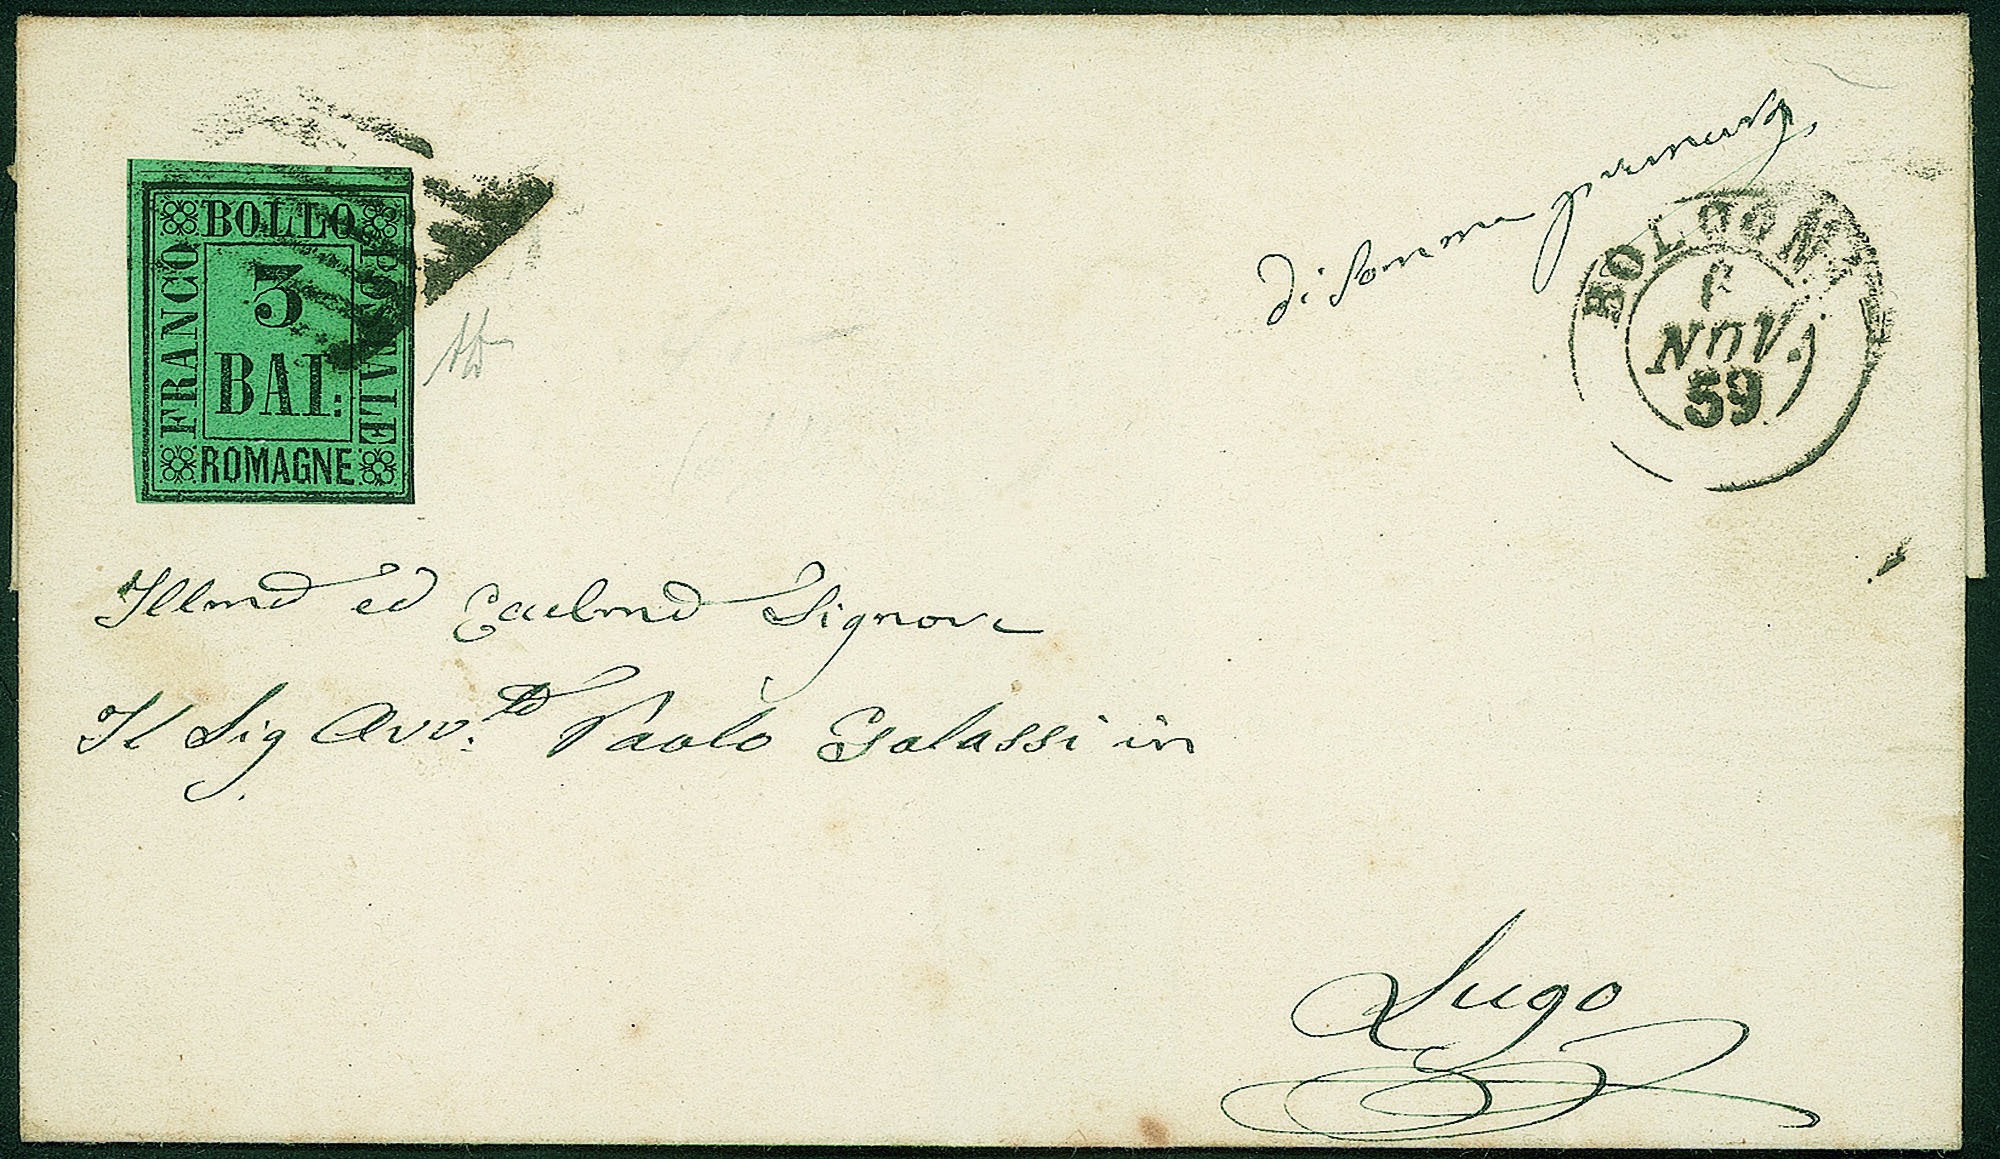 BOLLO
FRANCO
POSTALE
3
BAI:
ROMAGNE
di somma premura
BOLOGNA
NOV.
59
Illmo ed Eccelmo Signore
Il Sig Avv.to Paolo Galassi in
Lugo